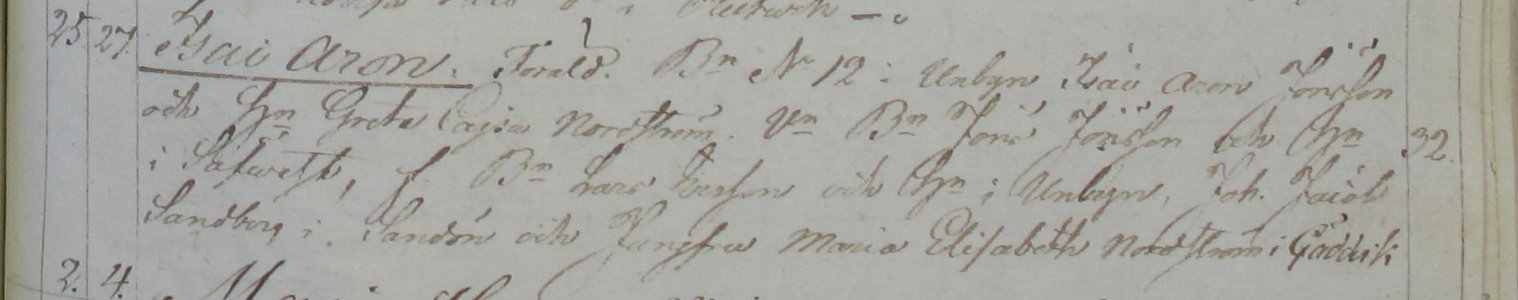 25 27. Isai Aron. Föräld. Bn No 12 i Unbyn Isai Aron Jonsson
och Hn Greta Cajsa Nordström. Vn Bn Jons Jönsson och Hn 32.
i Säfwast, f. Bn Lars Larsson och Hn i Unbyn, Joh. Jacob
Sandberg i Sandön och Jungfru Maria Elisabeth Nordström i Gäddvik
2. 4.